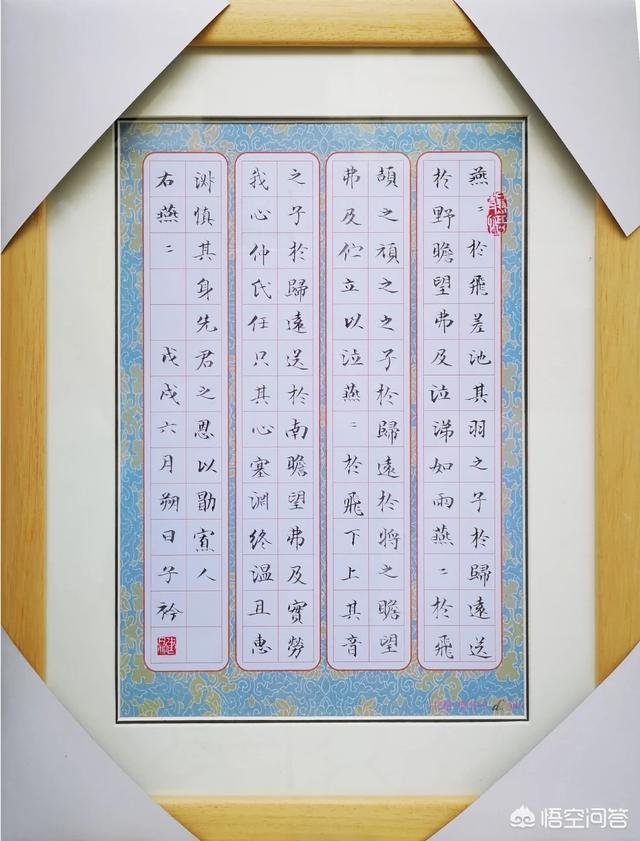 燕〻於飛差池其羽之子於歸遠送
於野瞻望弗及泣涕如雨燕〻於飛
頡之頏之之子於歸遠於將之瞻望
弗及伫立以泣燕〻於飛下上其音
之子於歸遠送於南瞻望弗及實勞
我心仲氏任只其心塞渊終温且惠
淑慎其身先君之思以勖寡人
右燕〻 戊戌六月朔日子衿
悟空问答